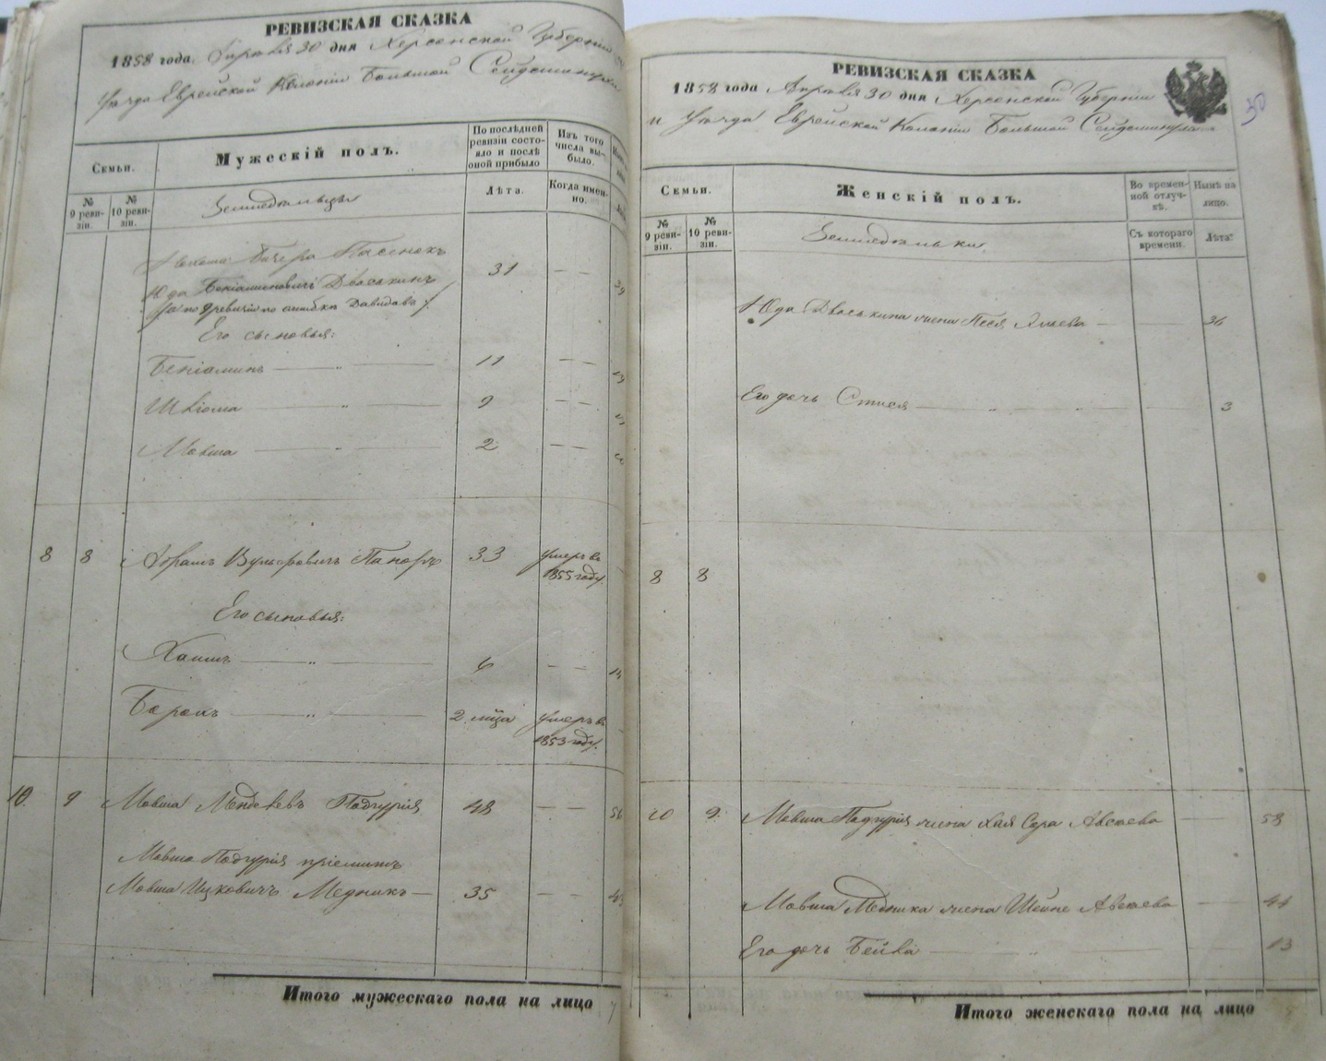 РЕВИЗСКАЯ СКАЗКА
1858 года, Апреля 30 дня Херсонской Губерніи
уезда Еврейской Колоніи Большой Сейдеминухи
Семьи.
Мужескій полъ.
По послѣдней ревизіи состояло и послѣ оной прибыло
Изъ того числа выбыло.
№ 9 ревизіи.
№ 10 ревизіи.
Земледельцы
Лѣта.
Когда именно.
Пасенокъ 31 — —
Юда Беніаминовичъ Двоскинъ
по ошибке Давидова
Его сыновья:
Беніаминъ — " — 11 — —
Шліома — " — 9 — —
Мовша — " — 2 — —
8 8 Абрамъ Вульфовичъ 33 умеръ въ 1855 году
Его сыновья:
Хаимъ — " — 6 — —
Борохъ — " — 2 м̃ца умеръ въ 1853 году
10 9 Мовша Подгурія 48 — — 58
Мовша Подгурія пріемышъ
Мовша Ицковичъ Медникъ — 35 —
Итого мужескаго пола на лицо
РЕВИЗСКАЯ СКАЗКА
30
1858 года Апреля 30 дня Херсонской Губерніи
и уезда Еврейской Колоніи Большой Сейдеминухи
Семьи.
Женскій полъ.
Во временной отлучкѣ.
Нынѣ на лицо.
№ 9 ревизіи.
№ 10 ревизіи.
Земледельки
Съ котораго времени.
Лѣта.
Юда Двоскина жена Песя — 36
Его дочь — " — " — 3
8 8
10 9 Мовша Подгурія жена Хая Сура — 58
Мовша Медника жена Шейне — 44
Его дочь Бейла — " — 13
Итого женскаго пола на лицо